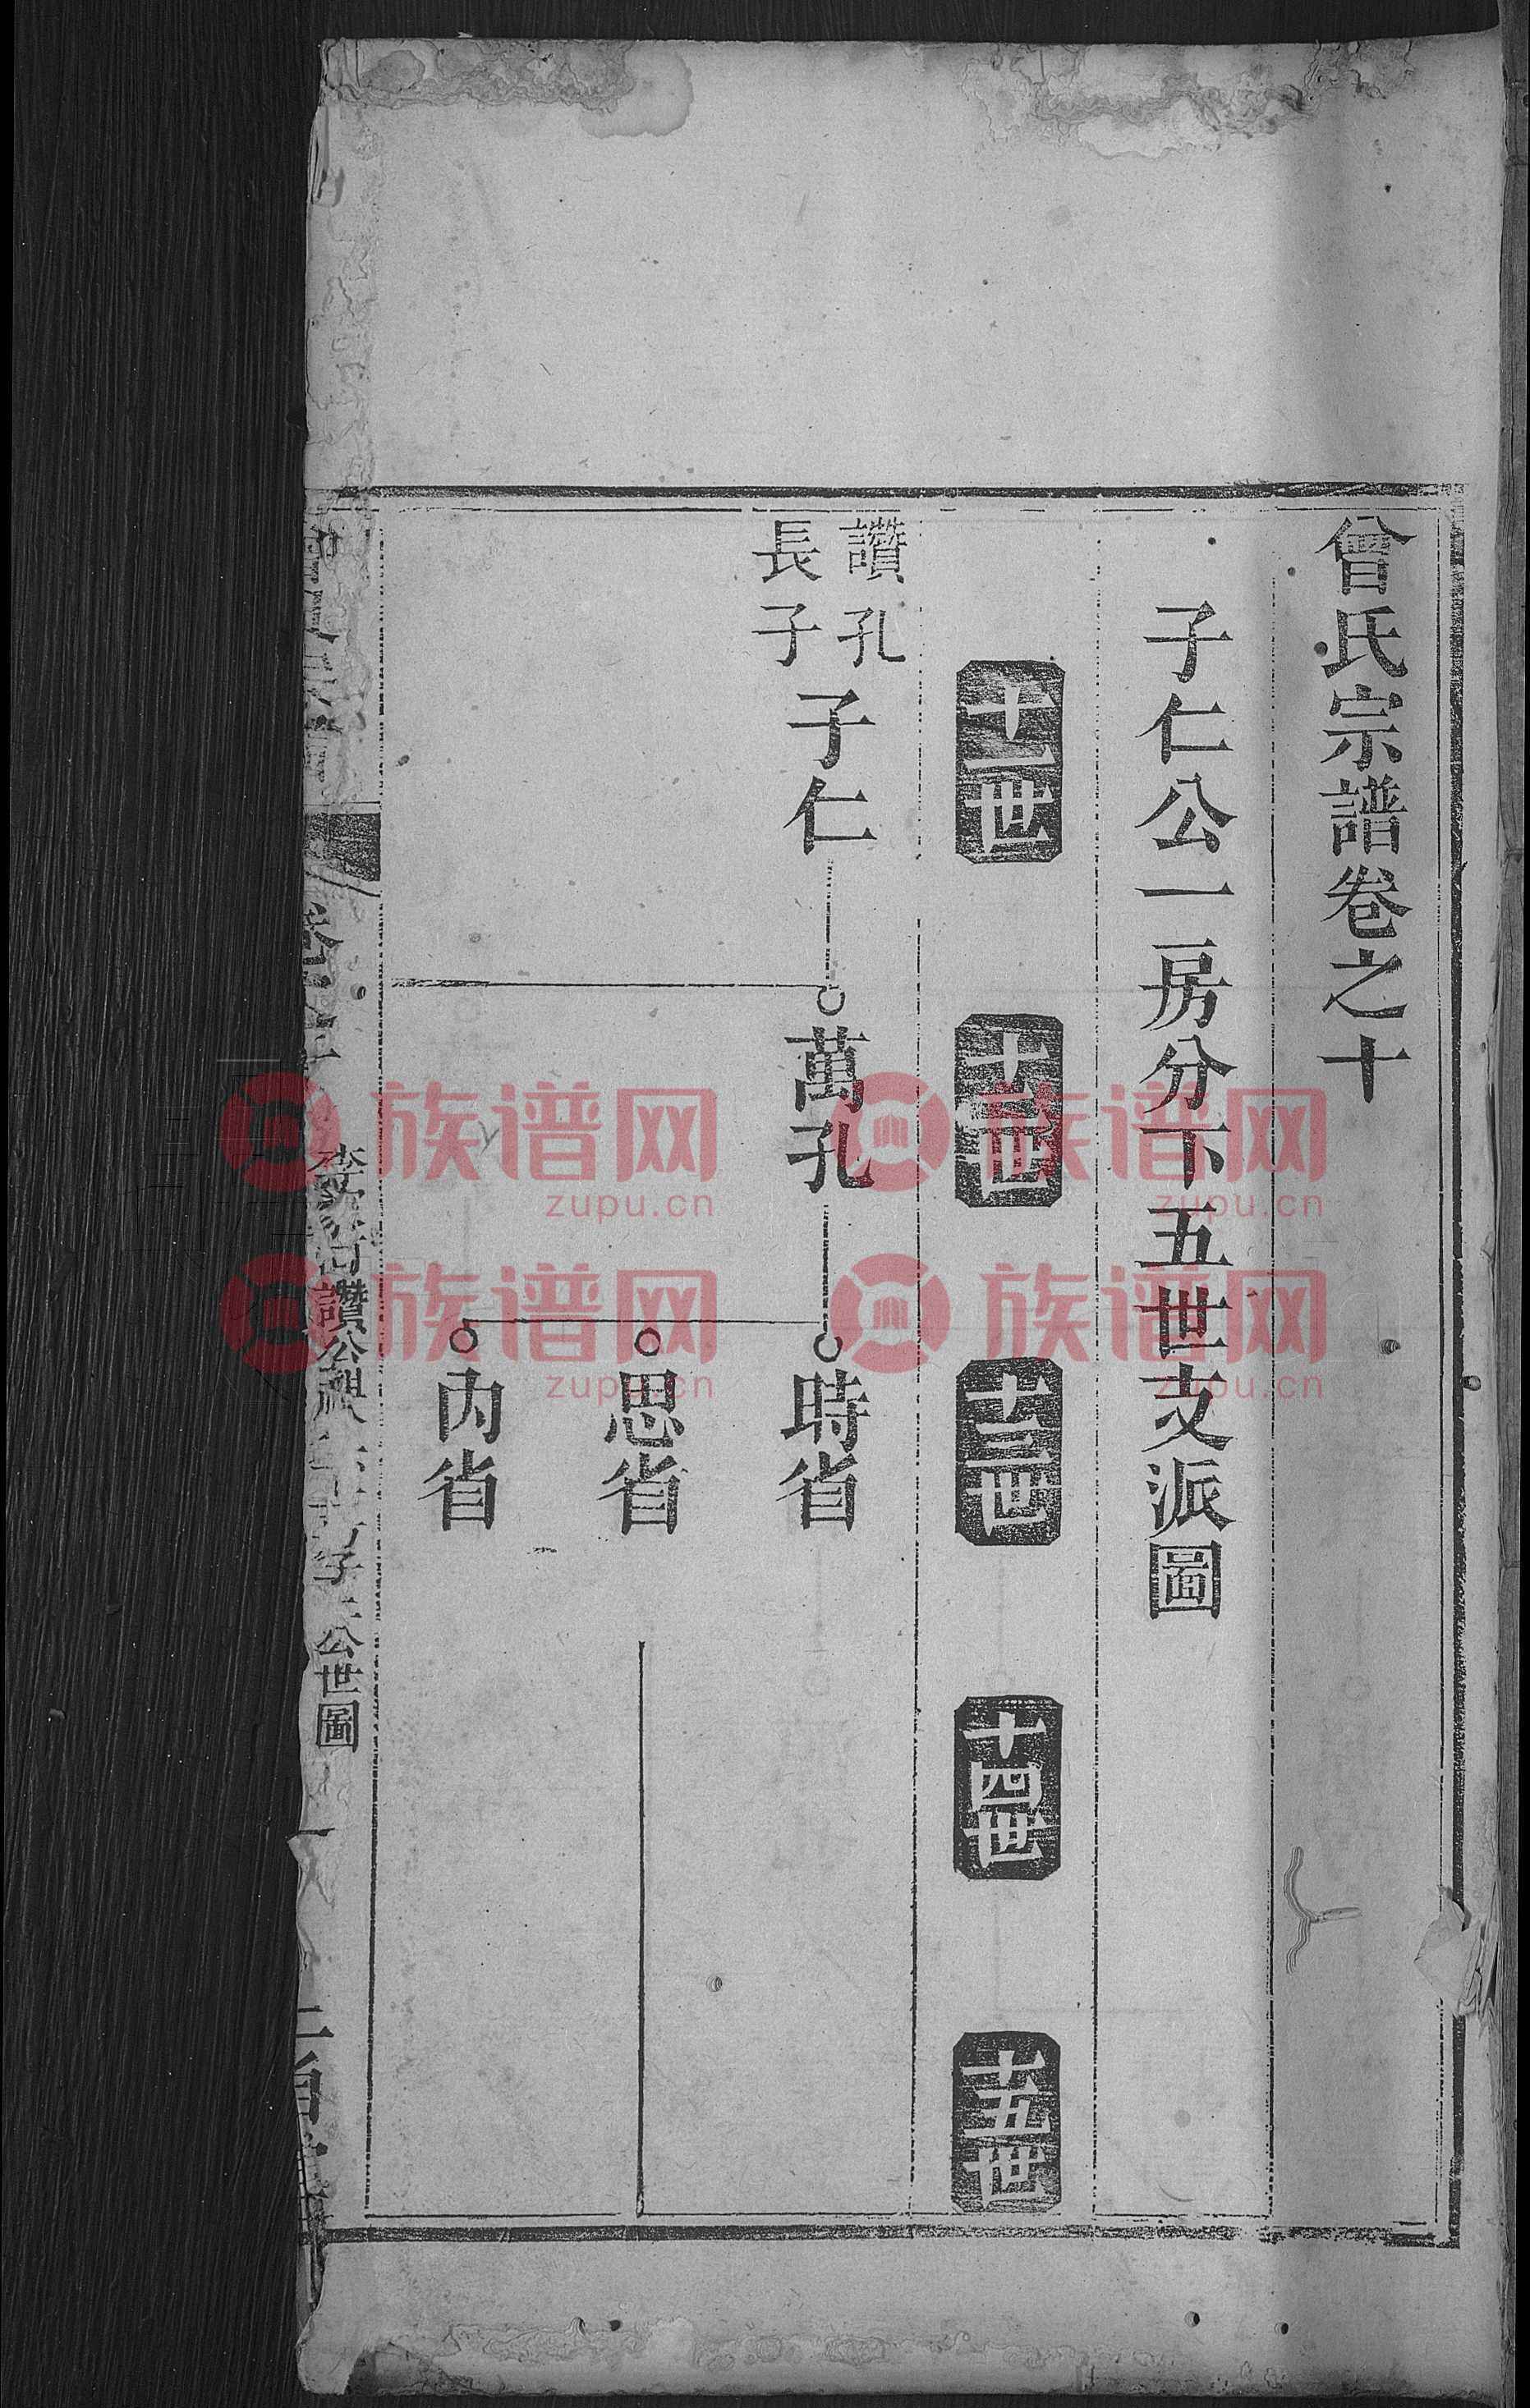 曾氏宗譜卷之十
子仁公一房分下五世支派圖
十一世
十二世
十三世
十四世
十五世
讚孔
長子
子仁
萬孔
時省
思省
內省
讚公
子
公世圖
一
族谱网
zupu.cn
族谱网
zupu.cn
族谱网
zupu.cn
族谱网
zupu.cn